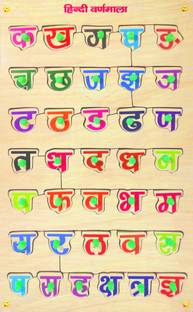 हिन्दी वर्णमाला
क ख ग घ ङ
च छ ज झ ञ
ट ठ ड ढ ण
त थ द ध न
प फ ब भ म
य र ल व श
ष स ह क्ष त्र ज्ञ